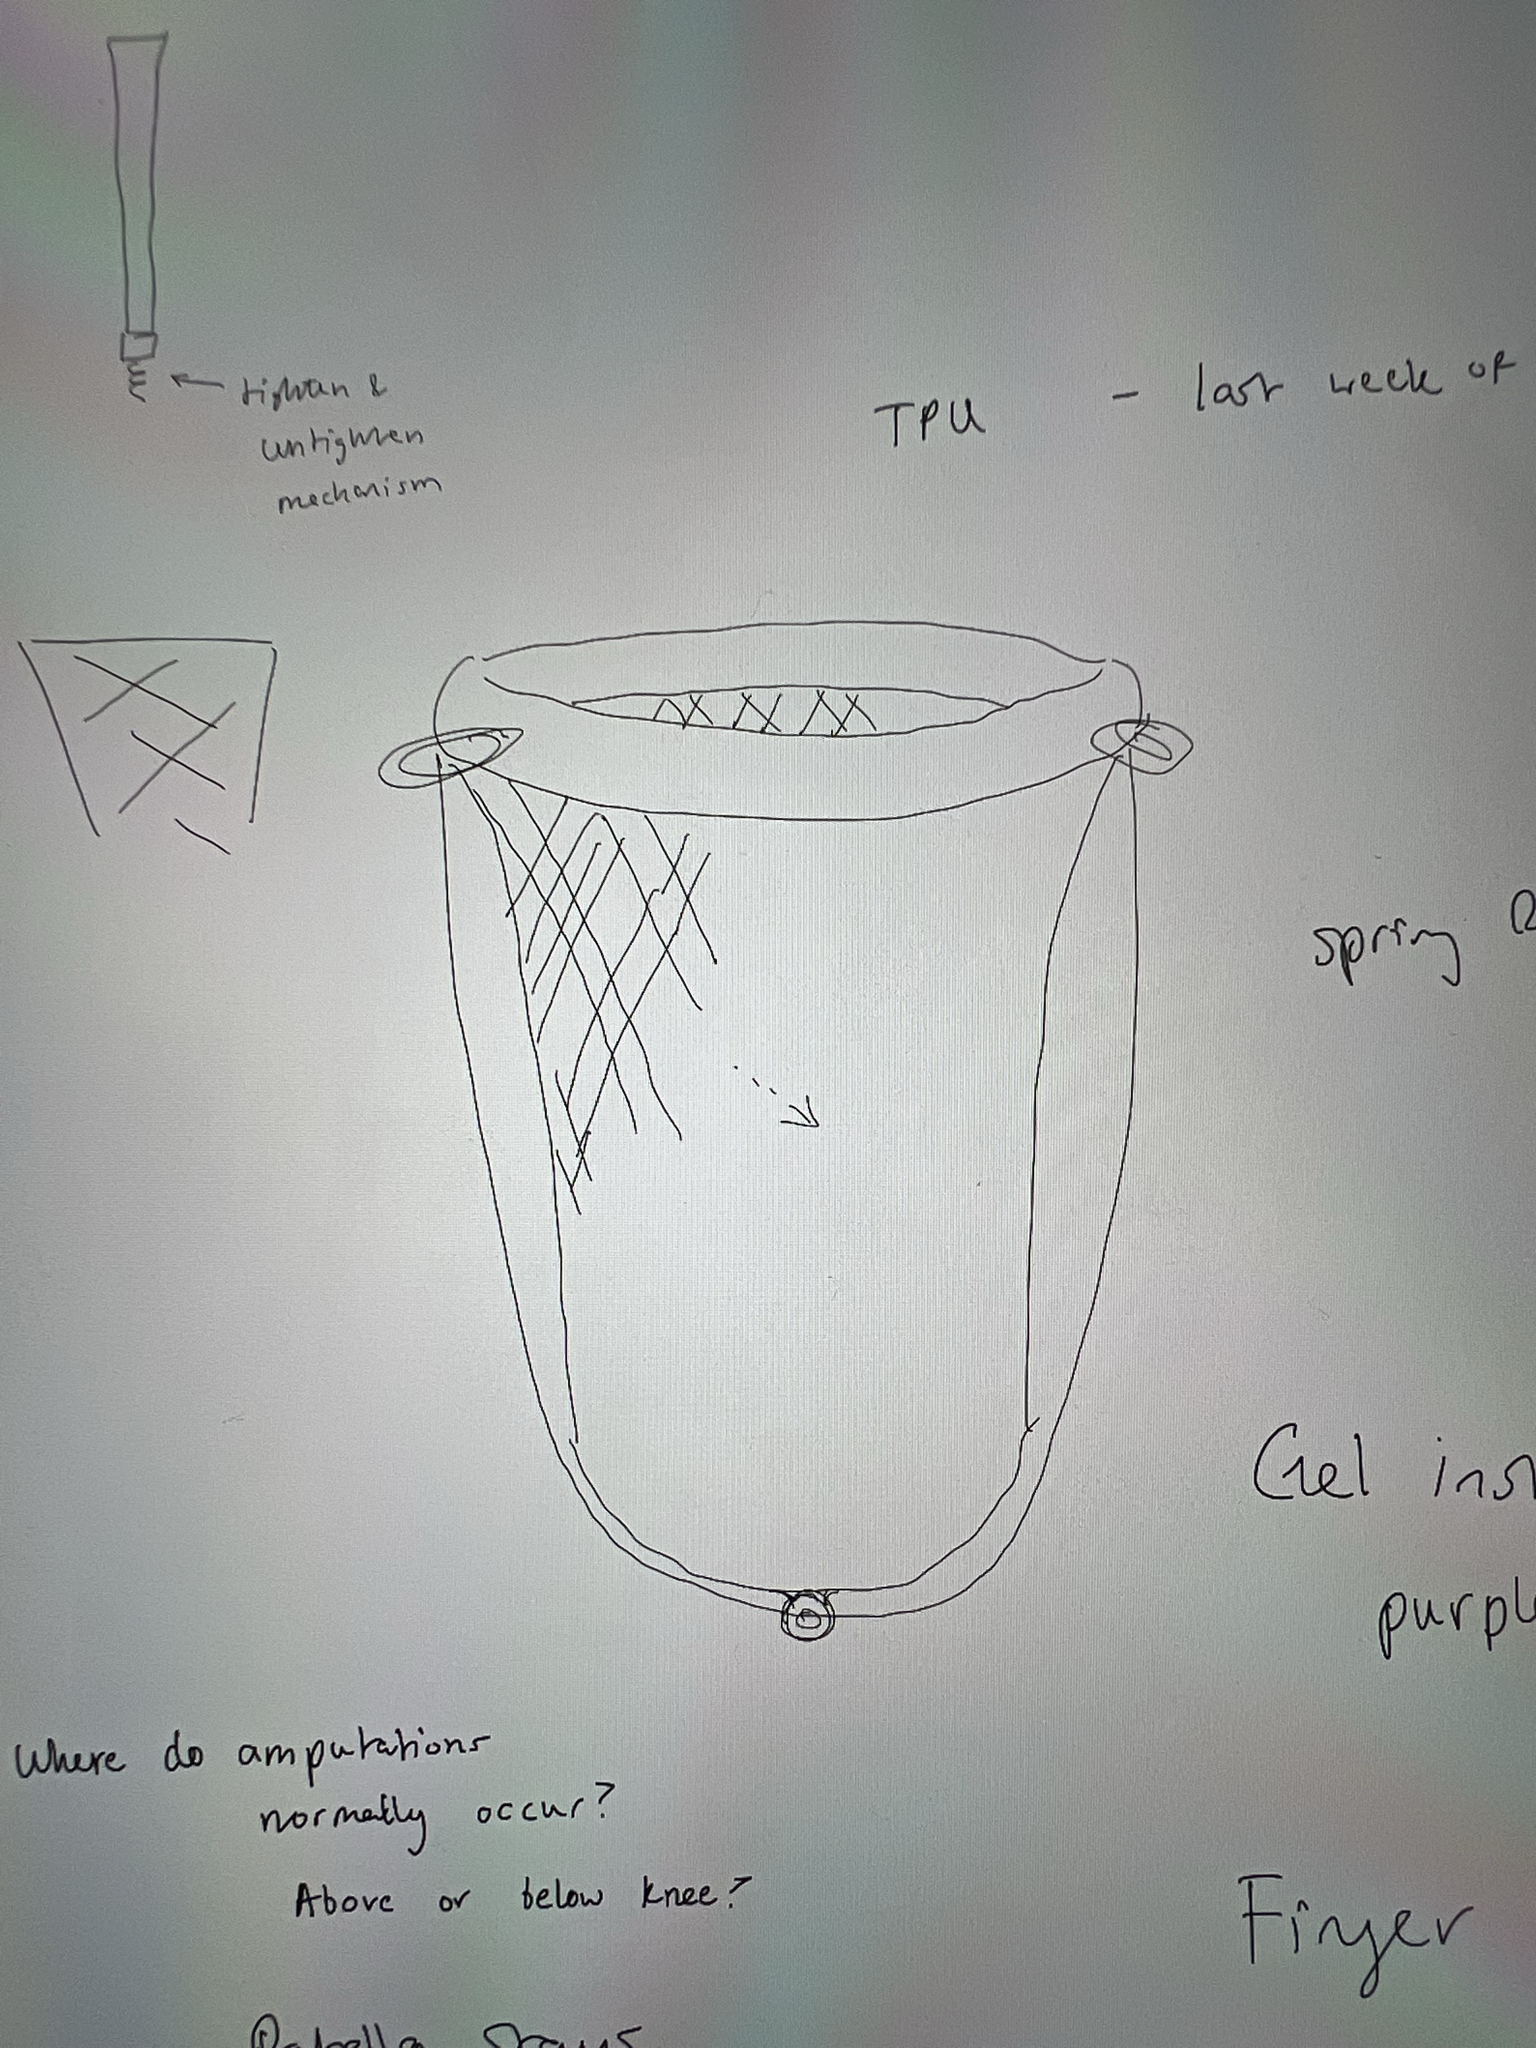 tighten &
untighten
mechanism
TPU - last week of
spring
Gel
Where do amputations
normally occur?
Above or below knee?
Finger